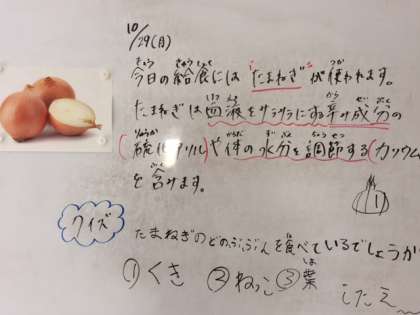 10/29(月)
今日の給食には"たまねぎ"が使われます。
たまねぎは血液をサラサラにする辛み成分の
(硫化アリル)や体の水分を調節する(カリウム
を含みます。
クイズ
たまねぎのどのぶぶんを食べているでしょうか
①くき ②ねっこ ③葉
こたえ〜